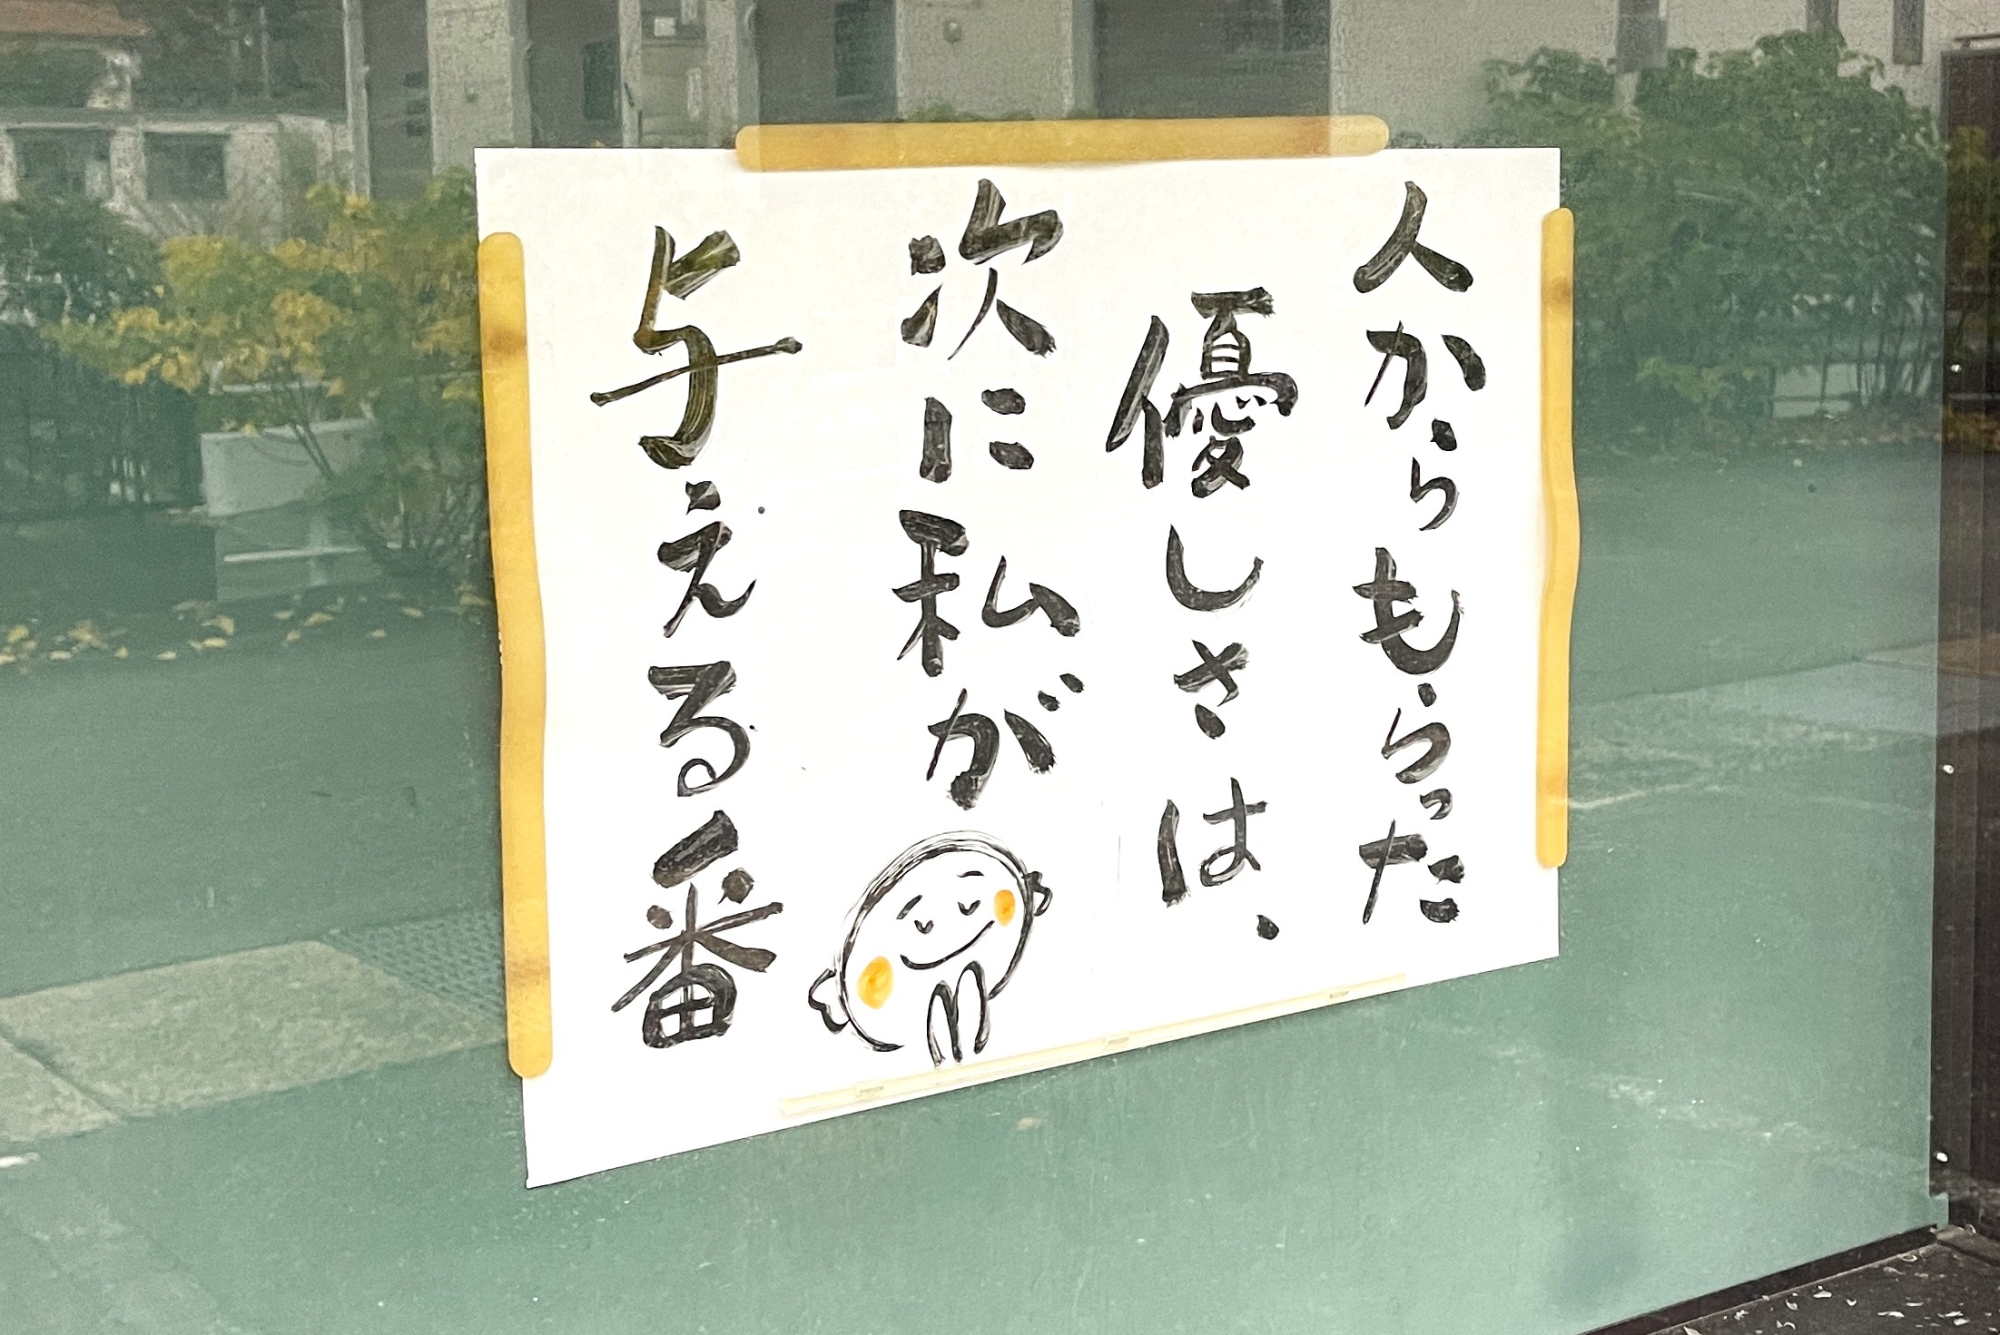 人からもらった
優しさは、
次に私が
与える番